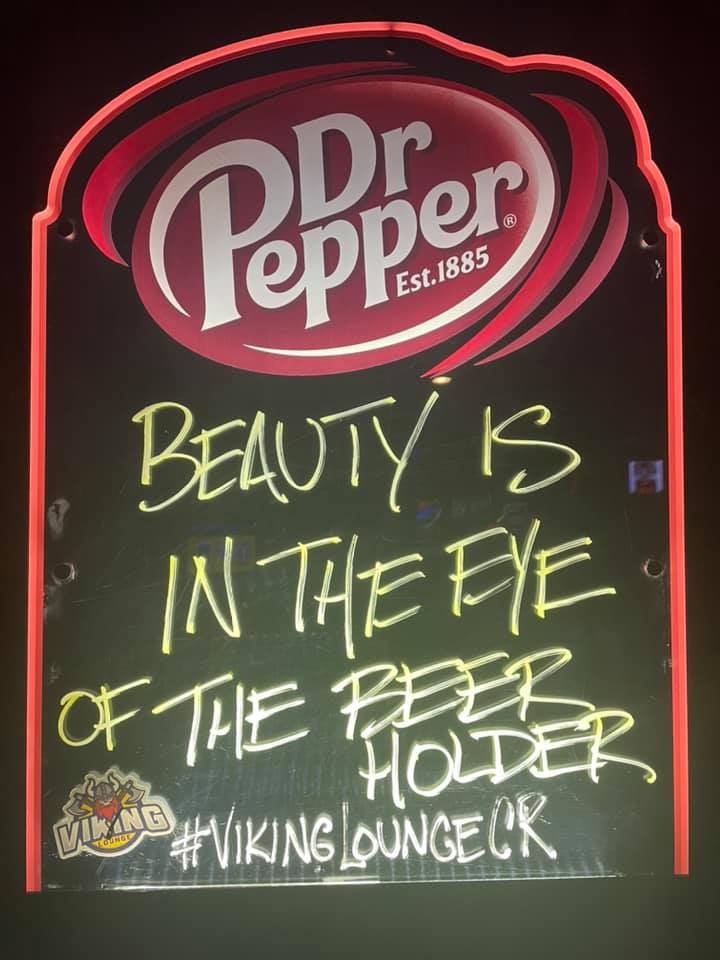 Dr
Pepper®
Est.1885
BEAUTY IS
IN THE EYE
OF THE BEER
HOLDER
VIKING
LOUNGE
#VIKINGLOUNGECR